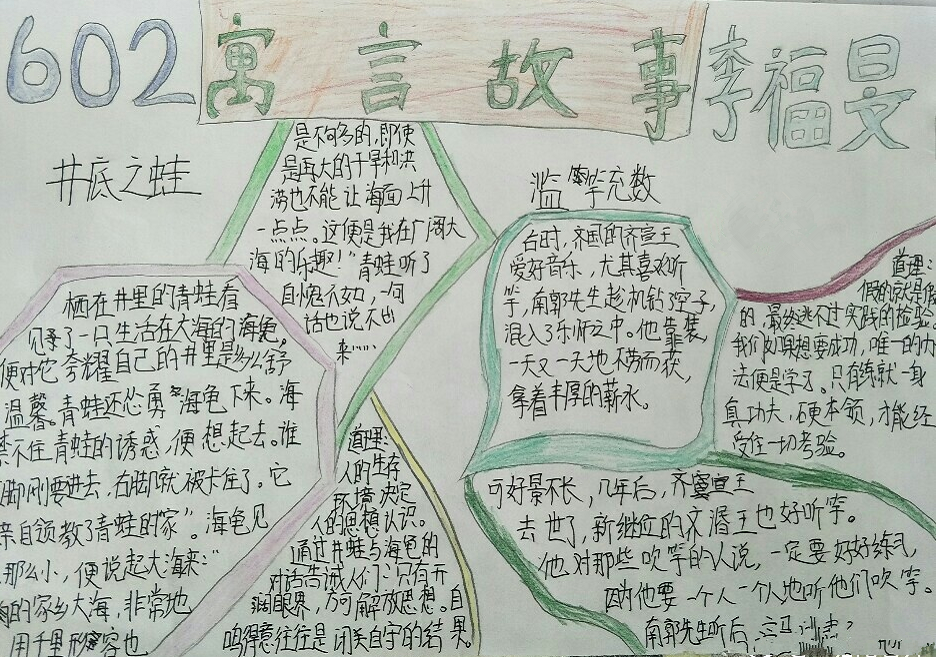 602
寓言故事
李福旻
井底之蛙
栖在井里的青蛙看
见了一只生活在大海的海龟。
便对它夸耀自己的井里是多么舒
温馨。青蛙还怂勇海龟下来。海
禁不住青蛙的诱惑,便想起去。谁
脚刚要进去,右脚就被卡住了。它
亲自领教了青蛙的“家”。海龟见
那么小,便说起大海来:“
的家乡大海,非常地
用千里形容也
是不够的,即使
是再大的干旱和洪
涝也不能让海面上升
一点点。这便是我在广阔大
海的乐趣!”青蛙听了
自愧不如,一句
话也说不出
来……
道理:
人的生存
环境决定
人的思想认识。
通过井蛙与海龟的
对话告诫人们:只有开
阔眼界,方可解放思想。自
鸣得意往往是闭关自守的结果。
滥竽充数
古时,齐国的齐宣王
爱好音乐,尤其喜欢听
竽,南郭先生趁机钻了空子
混入了乐师之中。他靠装
一天又一天地不劳而获,
拿着丰厚的薪水。
可好景不长,几年后,齐宣王
去世了,新继位的齐湣王也好听竽。
他对那些吹竽的人说,一定要好好练习,
因为他要一个人一个人地听他们吹竽。
南郭先生听后,
道理:
假的就是假
的,最终逃不过实践的检验。
我们如果想要成功,唯一的办
法便是学习。只有练就一身
真功夫,硬本领,才能经
受住一切考验。